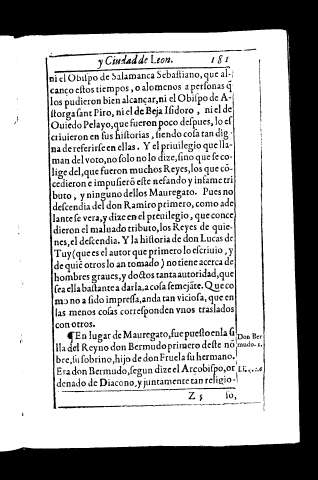 y Ciudad de Leon. 181
ni el Obispo de Salamanca Sebastiano, que al-
canço estos tiempos, o alomenos a personas q̃
los pudieron bien alcançar, ni el Obispo de A-
storga sant Piro, ni el de Beja Isidoro, ni el de
Ouiedo Pelayo, que fueron poco despues, lo es
criuieron en sus historias, siendo cosa tan dig
na de referirse en ellas. Y el priuilegio que lla-
man del voto, no solo no lo dize, sino que se co-
lige del, que fueron muchos Reyes, los que cõ-
cedieron e impusierõ este nefando y infame tri
buto, y ninguno dellos Mauregato. Pues no
descendia del don Ramiro primero, como ade
lante se vera, y dize en el preuilegio, que conce
dieron el maluado tributo, los Reyes de quie-
nes, el descendia. Y la historia de don Lucas de
Tuy (que es el autor que primero lo escriuio, y
de quiẽ otros lo an tomado) no tiene acerca de
hombres graues, y doctos tanta autoridad, que
sea ella bastante a darla, a cosa semejãte. Que co
mo no a sido impressa, anda tan viciosa, que en
las menos cosas corresponden vnos traslados
con otros.
¶ En lugar de Mauregato, fue puesto en la si
lla del Reyno don Bermudo primero deste nõ
bre, su sobrino, hijo de don Fruela su hermano.
Era don Bermudo, segun dize el Arçobispo, or
denado de Diacono, y juntamente tan religio-
Don Ber-
mudo. 1.
Z 5 so,